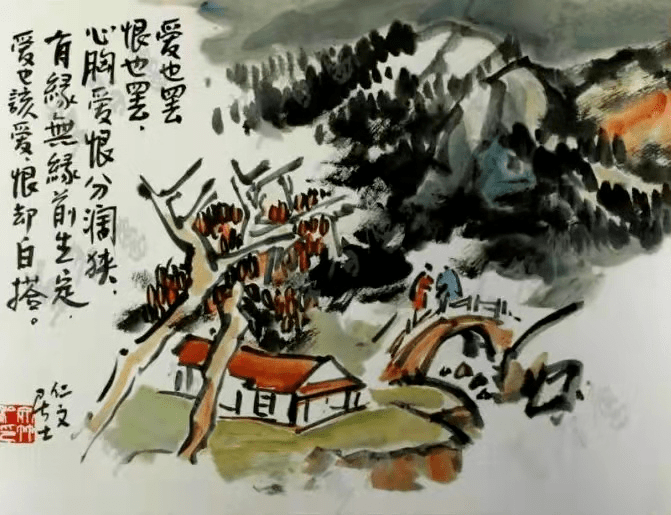 愛也罢
恨也罢、
心胸愛恨分濶狹、
有緣無緣前生定、
愛也該愛、恨却白搭。
仁文
居士